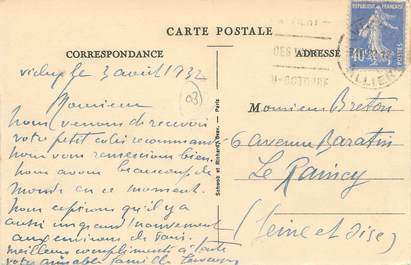 CARTE POSTALE
CORRESPONDANCE
ADRESSE
REPUBLIQUE FRANÇAISE
40
POSTES
ALLIER
DES
OCTOBRE
Vichy le 3 avril 1932
(03)
Monsieur
nous venons de recevoir
votre petit colis recommandé
nous vous remercions bien.
nous avons beaucoup de
monde en ce moment.
nous espérons qu'il y a
aussi un grand mouvement
aux environs de Paris.
meilleurs compliments à toute
votre aimable famille
Schwob et Richard, Desr. - Paris
Monsieur Breton
6 avenue Baratin
Le Raincy
(Seine et Oise)